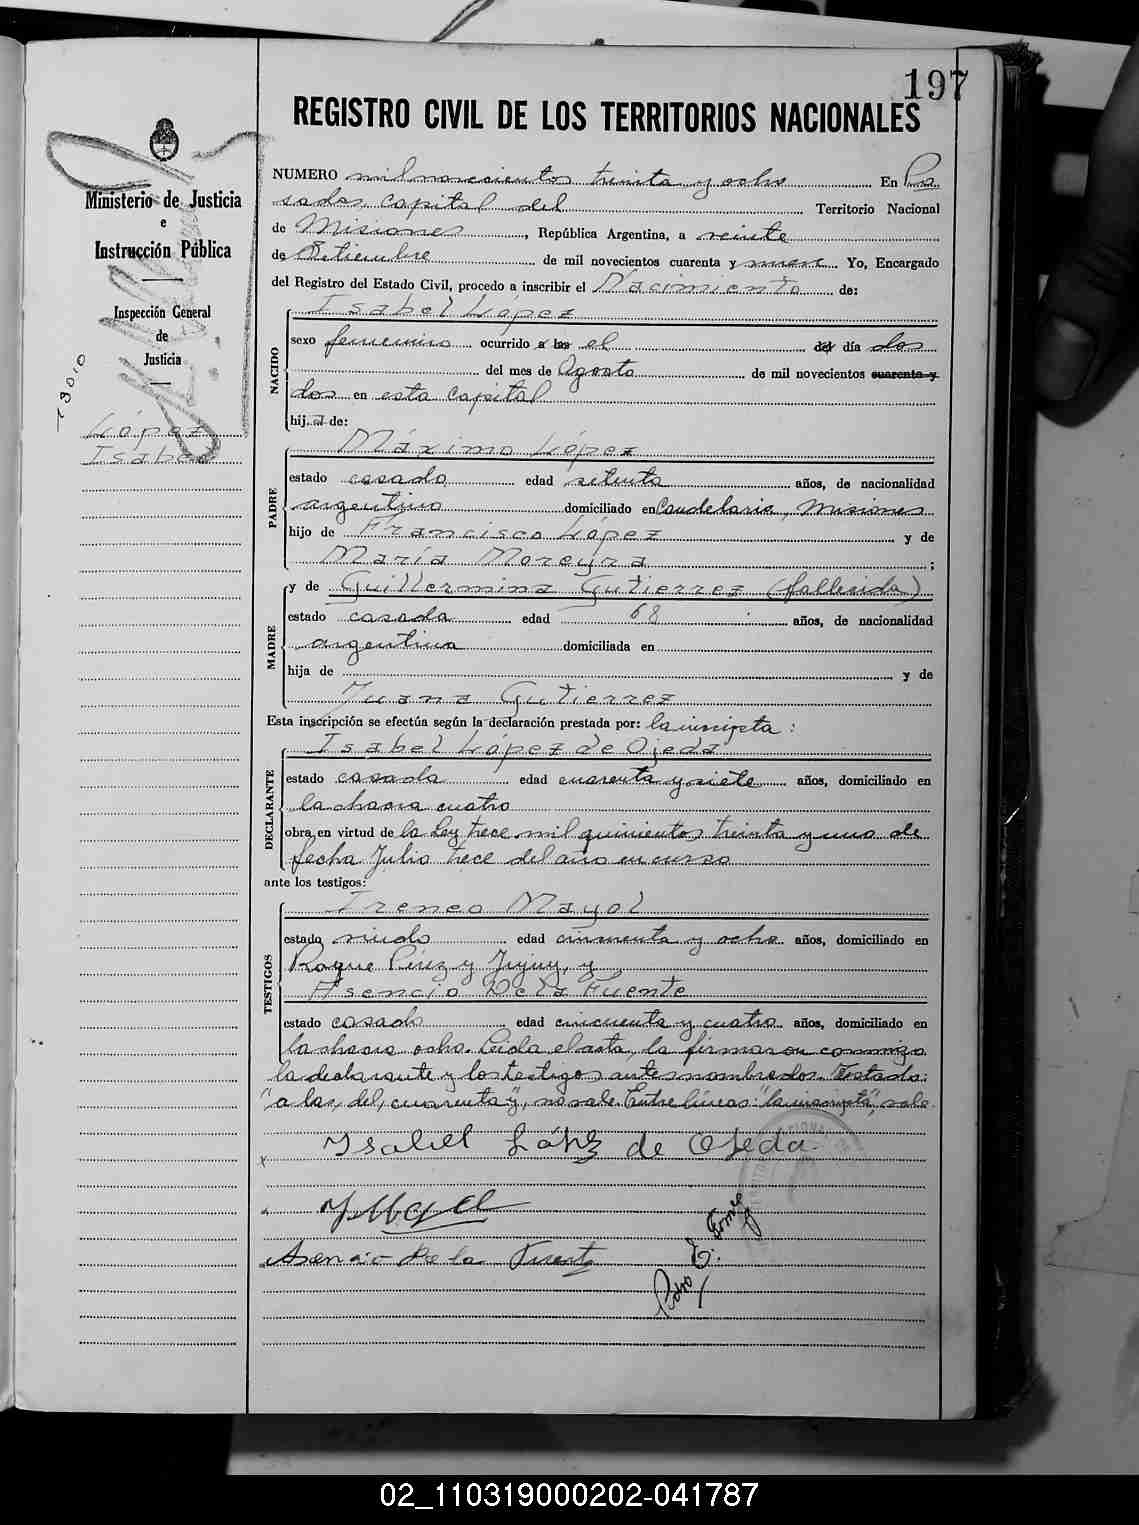 197
REGISTRO CIVIL DE LOS TERRITORIOS NACIONALES
Ministerio de Justicia
e
Instrucción Pública
Inspección General
de
Justicia
López
Isabel
NUMERO mil novecientos treinta y ocho En Po
sadas Capital del Territorio Nacional
de Misiones, República Argentina, a veinte
de Setiembre de mil novecientos cuarenta y nueve Yo, Encargado
del Registro del Estado Civil, procedo a inscribir el Nacimiento de:
NACIDO
Isabel López
sexo femenino ocurrido a las el del día dos
del mes de Agosto de mil novecientos cuarenta y
dos en esta Capital
hija de:
PADRE
Máximo López
estado casado edad setenta años, de nacionalidad
argentino domiciliado en Candelaria, Misiones
hijo de Francisco López y de
María Moreyra;
MADRE
y de Guillermina Gutierrez (fallecida)
estado casada edad 68 años, de nacionalidad
argentina domiciliada en
hija de y de
Juana Gutierrez
Esta inscripción se efectúa según la declaración prestada por: la inscripta:
DECLARANTE
Isabel López de Ojeda
estado casada edad cuarenta y siete años, domiciliado en
la chacra cuatro
obra, en virtud de la Ley trece mil quinientos treinta y uno de
fecha Julio trece del año en curso
ante los testigos:
TESTIGOS
Ireneo Mayol
estado viudo edad cincuenta y ocho años, domiciliado en
Roque Pérez y Jujuy, y
Asencio De la Fuente
estado casado edad cincuenta y cuatro años, domiciliado en
la chacra ocho. Leida el acta, la firmaron conmigo
la declarante y los testigos antes nombrados. Testado:
"a las, del, cuarenta y", no vale. Entre líneas: "la inscripta", vale.
Isabel López de Ojeda
I Mayol
Asencio De la Fuente
Pedro E.
02_110319000202-041787